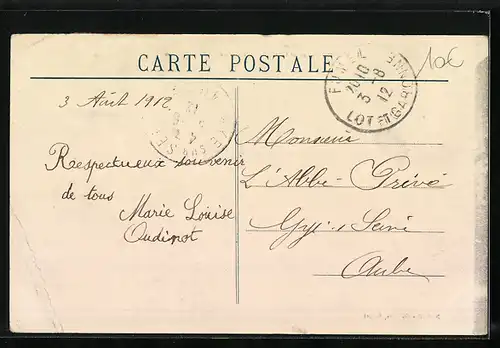 CARTE POSTALE
10€
3 Août 1912
Respectueux souvenir
de tous
Marie Louise
Oudinot
20 10
3 -8
12
LOT ET GARONNE
Monsieur
L'Abbé Privé
Gyé s Seine
Aube